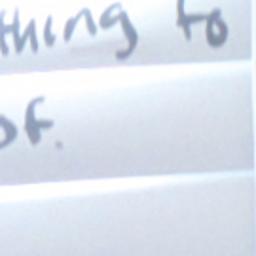 thing to
of.